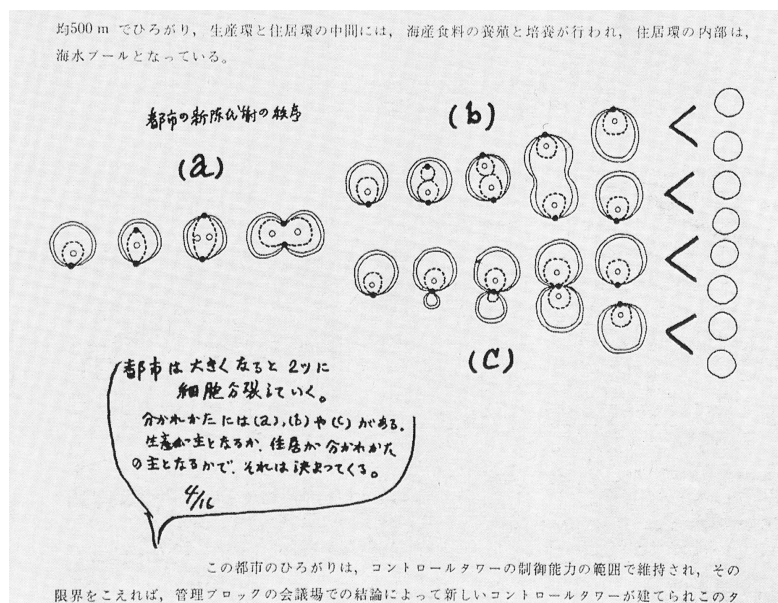 均500 m でひろがり，生産環と住居環の中間には，海産食料の養殖と培養が行われ，住居環の内部は，
海水プールとなっている。
都市の新陳代謝の秩序
(a)
(b)
(c)
都市は大きくなると 2ツに
細胞分裂していく。
分かれかたには(a),(b)や(c)がある。
生産が主となるか、住居が分かれかた
の主となるかで、それは決まってくる。
4/16
この都市のひろがりは，コントロールタワーの制御能力の範囲で維持され，その
限界をこえれば，管理ブロックの会議場での結論によって新しいコントロールタワーが建てられこのタ